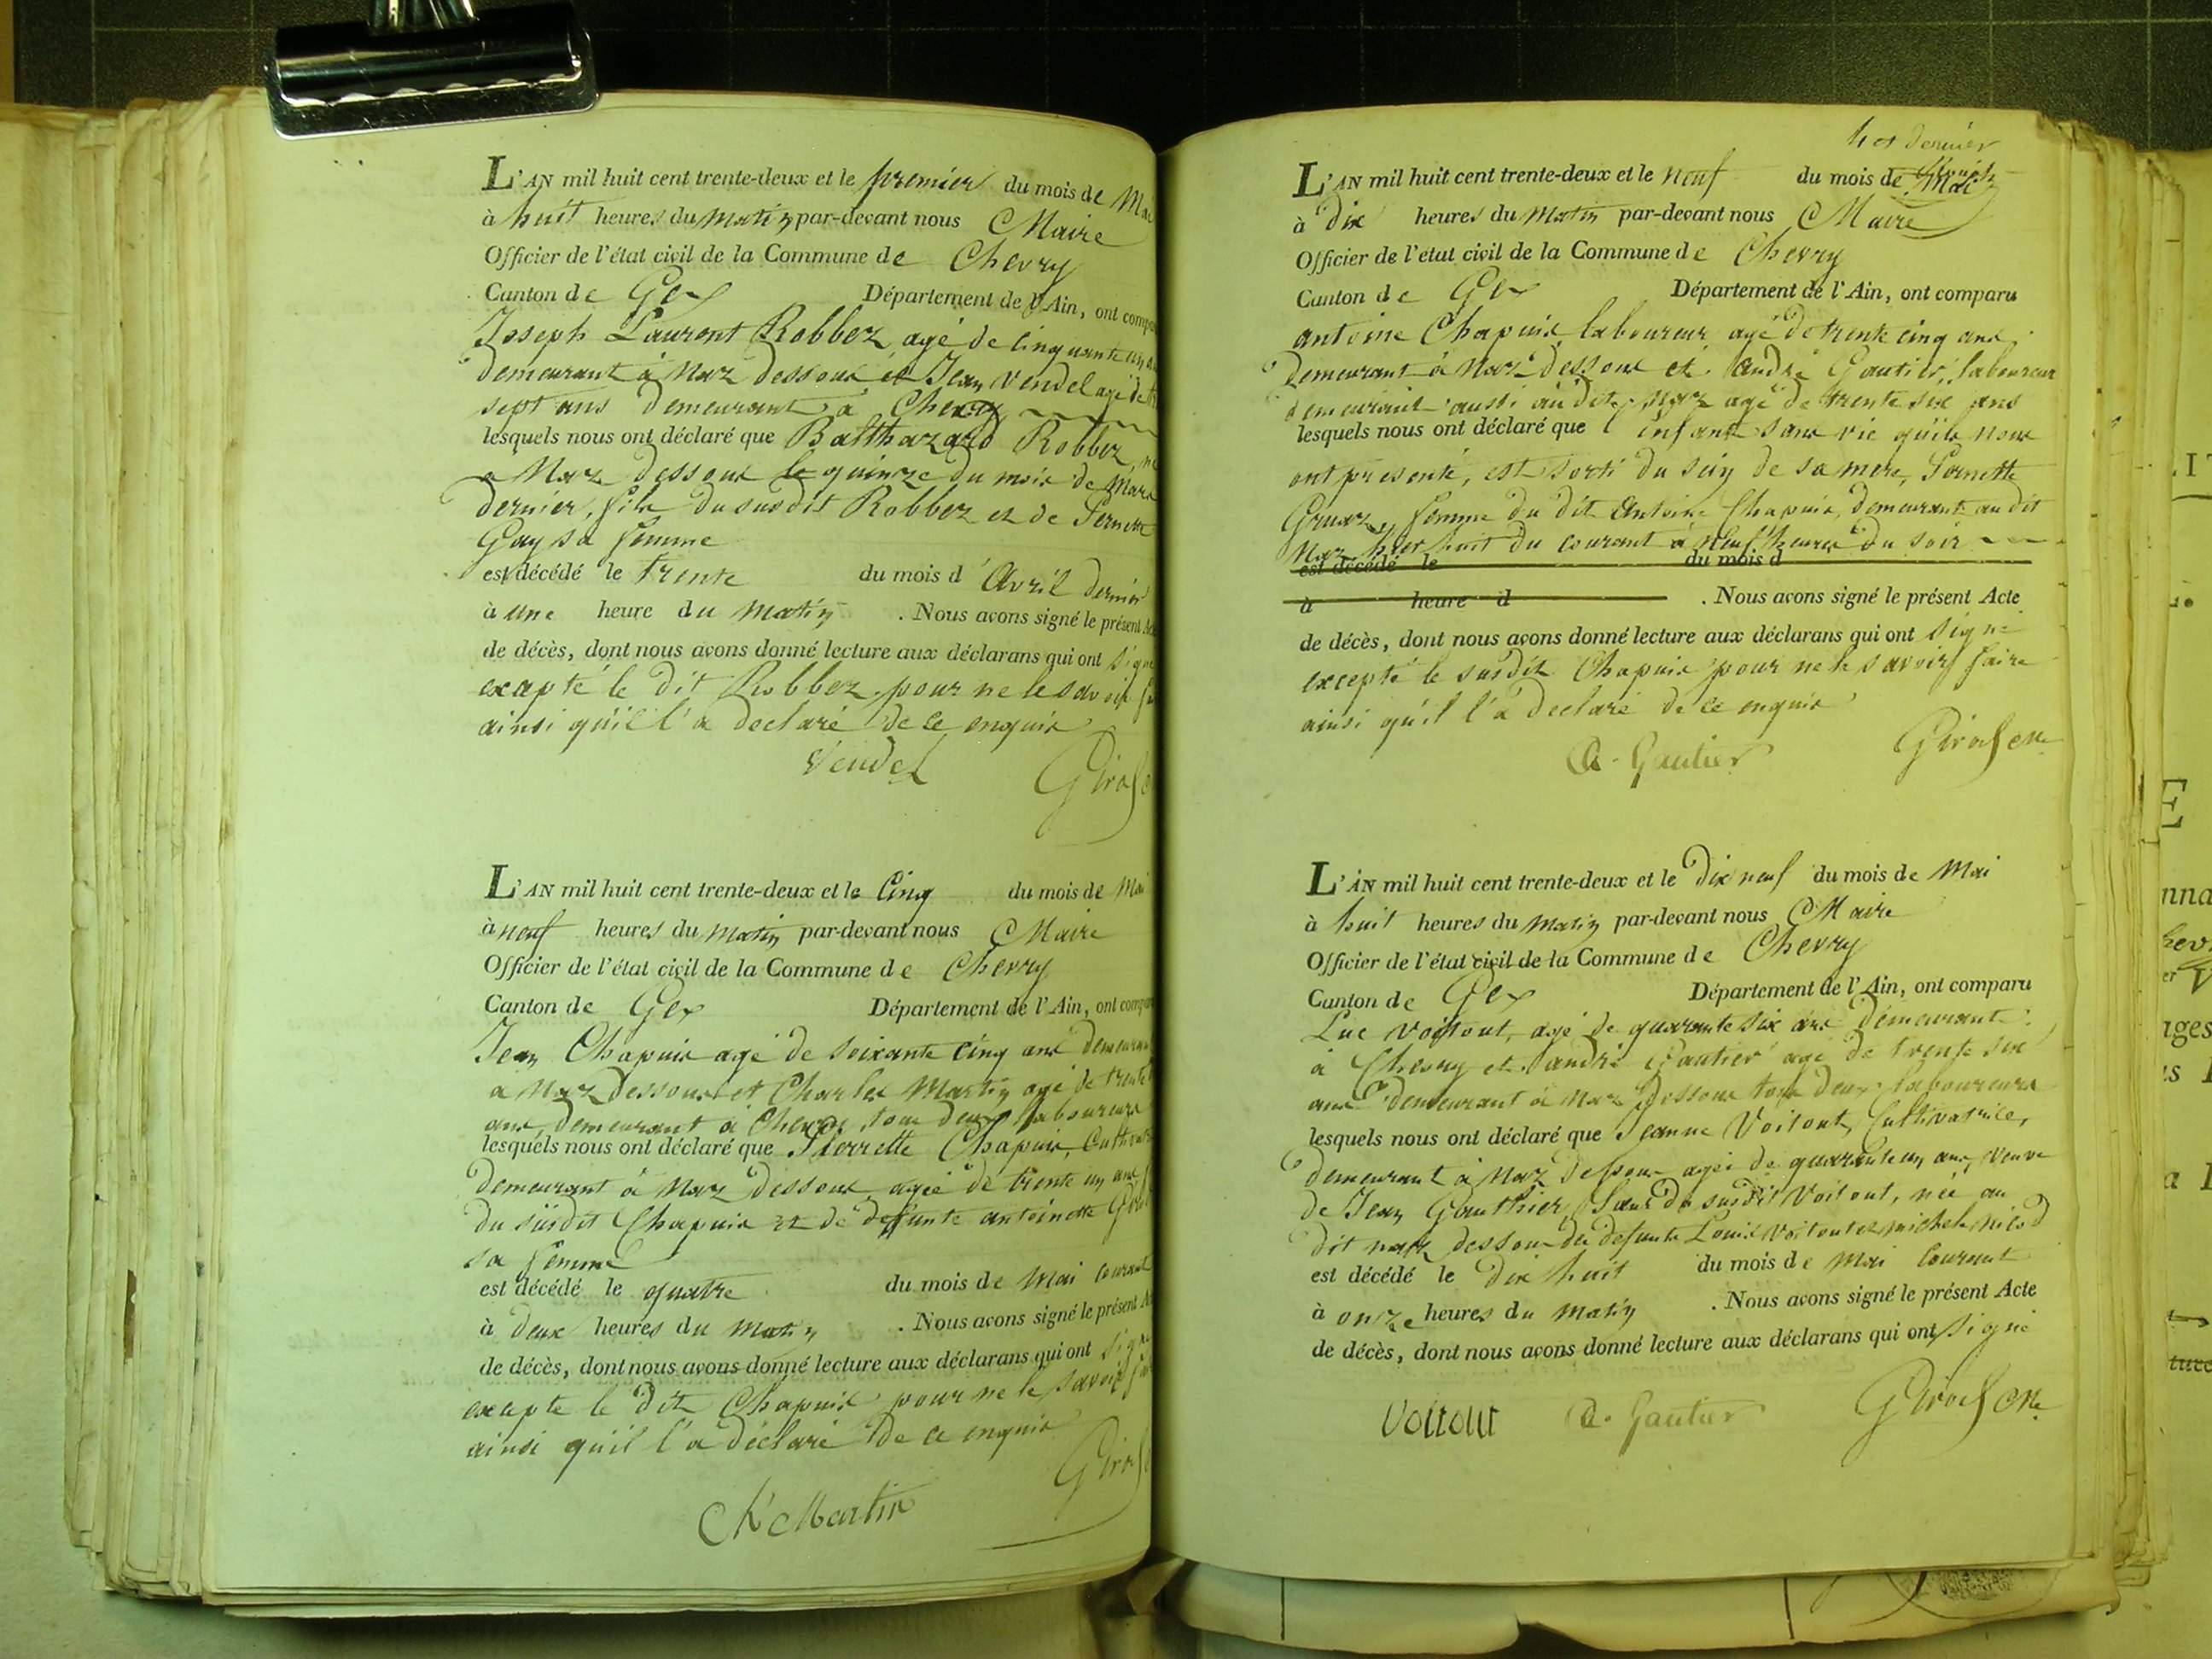 L'AN mil huit cent trente-deux et le premier du mois de Mai
à huit heures du Matin par-devant nous Maire
Officier de l'état civil de la Commune de Chevry
Canton de Gex Département de l'Ain, ont
Joseph Laurent Robbez agé de cinquante
demeurant à Naz dessous et Jean Vendel agé de
sept ans demeurant à Chevry
lesquels nous ont déclaré que Balthazard Robbez
a Naz dessous le quinze du mois de Mars
dernier, fils du susdit Robbez et de Pernette
Gay sa femme
est décédé le trente du mois d'Avril dernier
à une heure du matin . Nous avons signé le présent
de décès, dont nous avons donné lecture aux déclarans qui ont
exapté le dit Robbez pour ne le savoir
ainsi qu'il l'a declaré de ce enquis
Vendel
L'AN mil huit cent trente-deux et le Cinq du mois de Mai
à neuf heures du matin par-devant nous Maire
Officier de l'état civil de la Commune de Chevry
Canton de Gex Département de l'Ain, ont
Jean Chapuis agé de soixante cinq ans
à Naz Dessous et Charles Martin agé de trente
ans, demeurant à Chevry tous deux laboureurs
lesquels nous ont déclaré que Pierrette Chapuis,
demeurant à Naz dessous agée de trente un ans
du susdit Chapuis et de defunte antoinette
sa femme
est décédé le quatre du mois de Mai courant
à deux heures du matin . Nous avons signé le présent
de décès, dont nous avons donné lecture aux déclarans qui ont
excepté le dit Chapuis pour ne le savoir
ainsi qu'il l'a déclaré de ce enquis
Ch Martin
dernier
L'AN mil huit cent trente-deux et le neuf du mois de Mai
à Dix heures du Matin par-devant nous Maire
Officier de l'état civil de la Commune de Chevry
Canton de Gex Département de l'Ain, ont comparu
antoine Chapuis laboureur agé de trente cinq ans
Demeurant à Naz Dessous et André Gautier, laboureur
demeurant aussi au dit Naz agé de trente six ans
lesquels nous ont déclaré que l'enfant sans vie qu'ils nous
ont présenté, est sorti du sein de sa mere, Pernette
femme du dit Antoine Chapuis, demeurant au dit
Naz hier huit du courant à neuf heures du soir
est décédé le du mois d
à heure d . Nous avons signé le présent Acte
de décès, dont nous avons donné lecture aux déclarans qui ont signé
excepté le susdit Chapuis pour ne le savoir faire
ainsi qu'il l'a declaré de ce enquis
A. Gautier
L'AN mil huit cent trente-deux et le Dix neuf du mois de Mai
à huit heures du Matin par-devant nous Maire
Officier de l'état civil de la Commune de Chevry
Canton de Gex Département de l'Ain, ont comparu
Luc Voitout, agé de quarante six ans demeurant
à Chevry et andré Gautier agé de trente six
ans demeurant à Naz Dessous tous deux laboureurs
lesquels nous ont déclaré que Jeanne Voitout, Cultivatrice,
demeurant à Naz Dessous agée de quarante un ans, veuve
de Jean Gauthier, Sœur du susdit Voitout, née au
dit naz dessous de defunts Louis Voitout et michele nicod
est décédé le dix huit du mois de Mai courant
à onze heures du matin . Nous avons signé le présent Acte
de décès, dont nous avons donné lecture aux déclarans qui ont signé
Voitout A. Gautier